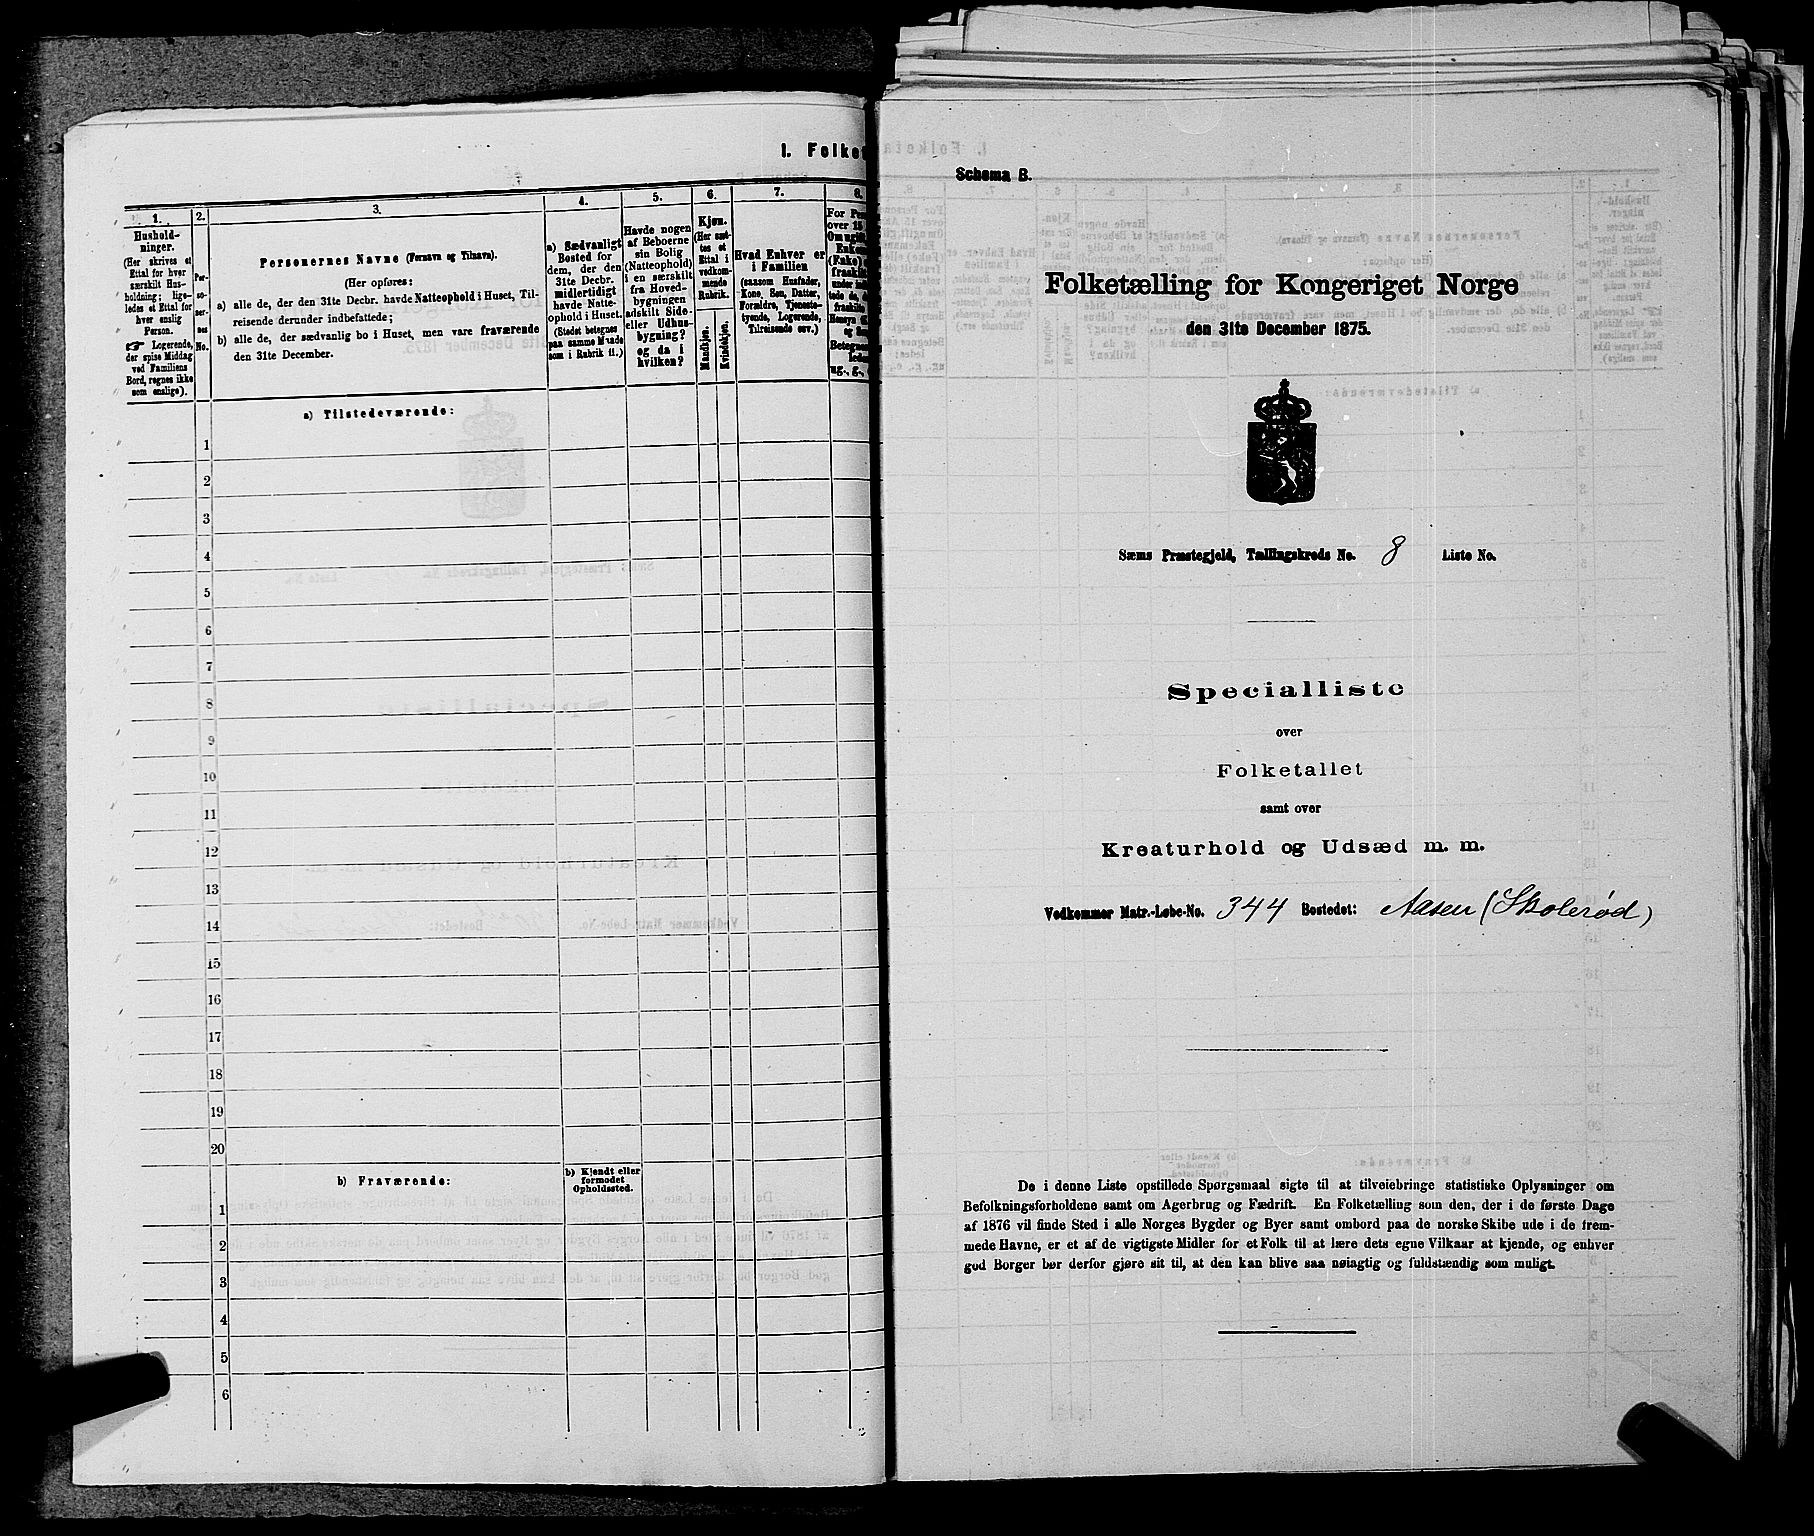 I. Folket
1.
2.
3.
4.
5.
6.
7.
8.
Hushold-
ninger.
(Her skrives et
Ettal for hver
særskilt Hus-
holdning; lige-
ledes et Ettal for
hver enslig
Person.
☞ Logerende,
der spise Middag
ved Familiens
Bord, regnes ikke
som enslige).
Per-
so-
ner-
nes
No.
Personernes Navne (Fornavn og Tilnavn).
(Her opføres:
a) alle de, der den 31te Decbr. havde Natteophold i Huset, Til-
reisende derunder indbefattede;
b) alle de, der sædvanlig bo i Huset, men vare fraværende
den 31te December.
a) Sædvanligt
Bosted for
dem, der den
31te Decbr.
midlertidigt
havde Natte-
ophold i Huset.
(Stedet betegnes
paa samme Maade
som i Rubrik 11.)
Havde nogen
af Beboerne
sin Bolig
(Natteophold)
i en særskilt
fra Hoved-
bygningen
adskilt Side-
eller Udhus-
bygning?
og da i
hvilken?
Kjøn.
(Her sæt-
tes et
Ettal i
vedkom-
mende
Rubrik.
Mandkjøn.
Kvindekjøn.
Hvad Enhver er
i Familien
(saasom Husfader,
Kone, Søn, Datter,
Forældre, Tjeneste-
tyende, Logerende,
Tilreisende osv.)
For Per
over 15
a) Tilstedeværende:
1
2
3
4
5
6
7
8
9
10
11
12
13
14
15
16
17
18
19
20
b) Fraværende:
b) Kjendt eller
formodet
Opholdssted.
1
2
3
4
5
6
Schema B.
Folketælling for Kongeriget Norge
den 31te December 1875.
Sæms Præstegjeld, Tællingskreds No. 8 Liste No.
Specialliste
over
Folketallet
samt over
Kreaturhold og Udsæd m. m.
Vedkommer Matr.-Løbe-No. 344 Bostedet: Aasen (Skolerød)
De i denne Liste opstillede Spørgsmaal sigte til at tilveiebringe statistiske Oplysninger om
Befolkningsforholdene samt om Agerbrug og Fædrift. En Folketælling som den, der i de første Dage
af 1876 vil finde Sted i alle Norges Bygder og Byer samt ombord paa de norske Skibe ude i de frem-
mede Havne, er et af de vigtigste Midler for et Folk til at lære dets egne Vilkaar at kjende, og enhver
god Borger bør derfor gjøre sit til, at den kan blive saa nøiagtig og fuldstændig som muligt.